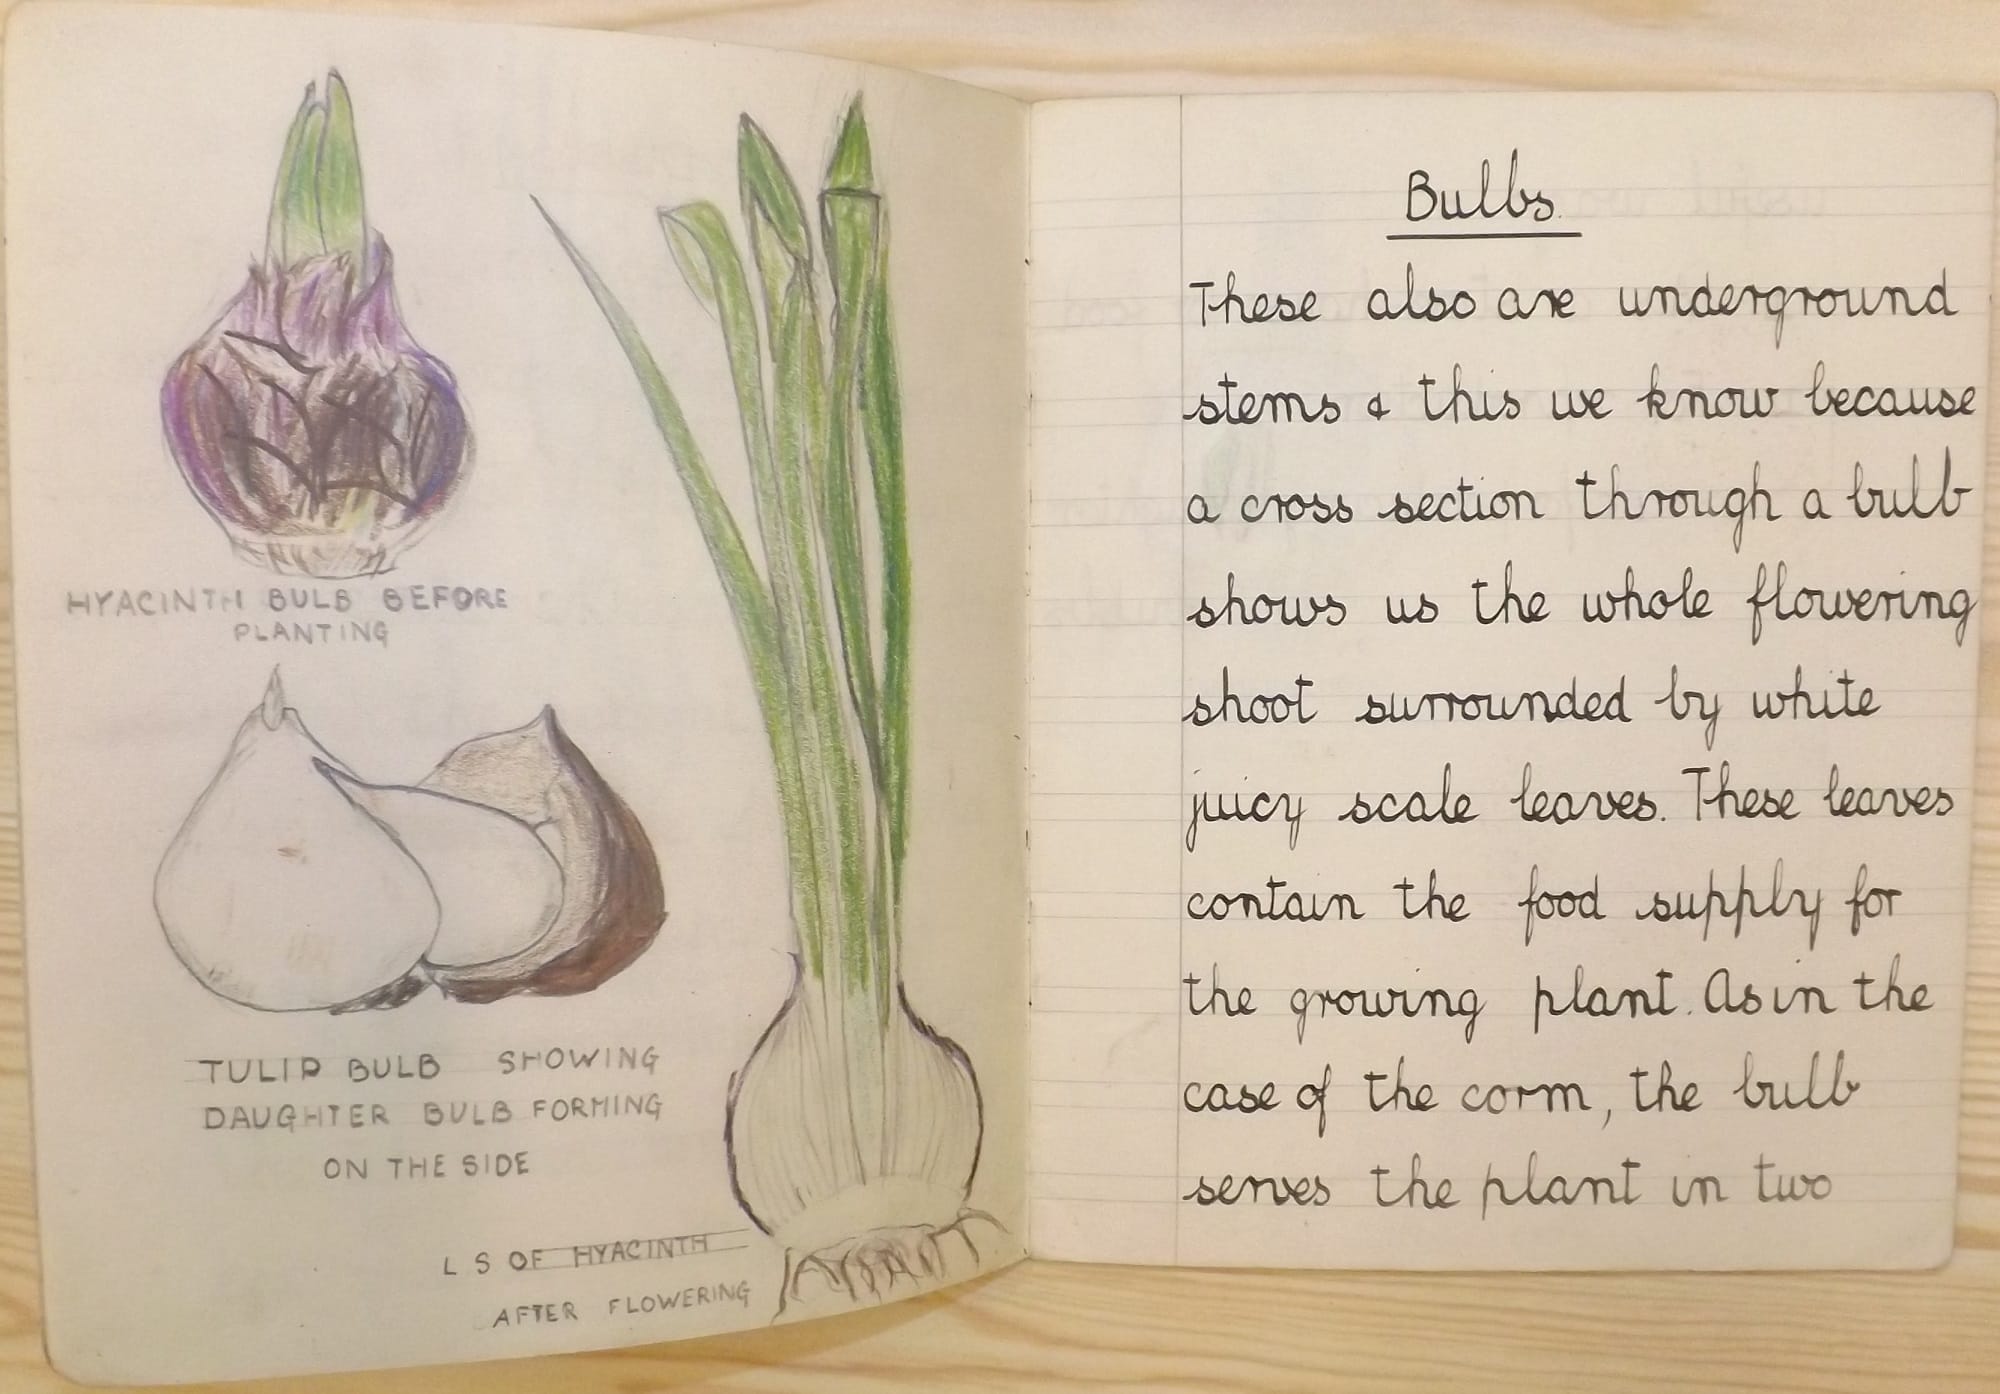 HYACINTH BULB BEFORE
PLANTING
TULIP BULB SHOWING
DAUGHTER BULB FORMING
ON THE SIDE
L S OF HYACINTH
AFTER FLOWERING
Bulbs.
These also are underground
stems & this we know because
a cross section through a bulb
shows us the whole flowering
shoot surrounded by white
juicy scale leaves. These leaves
contain the food supply for
the growing plant. As in the
case of the corm, the bulb
serves the plant in two